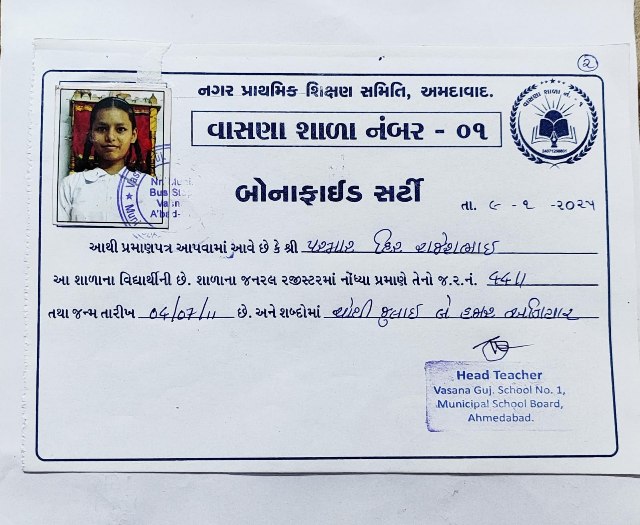 ૨
નગર પ્રાથમિક શિક્ષણ સમિતિ, અમદાવાદ.
વાસણા શાળા નંબર - ૦૧
વાસણા શાળા નં. - ૧
બોનાફાઈડ સર્ટી
તા. ૯ - ૧ - ૨૦૨૫
આથી પ્રમાણપત્ર આપવામાં આવે છે કે શ્રી પરમાર હિર રાજેશભાઇ
આ શાળાના વિદ્યાર્થીની છે. શાળાના જનરલ રજીસ્ટરમાં નોંધ્યા પ્રમાણે તેનો જ.ર.નં. 4411
તથા જન્મ તારીખ 04/07/11 છે. અને શબ્દોમાં ચોથી જુલાઈ બે હજાર અગિયાર
Head Teacher
Vasana Guj. School No. 1,
Municipal School Board,
Ahmedabad.